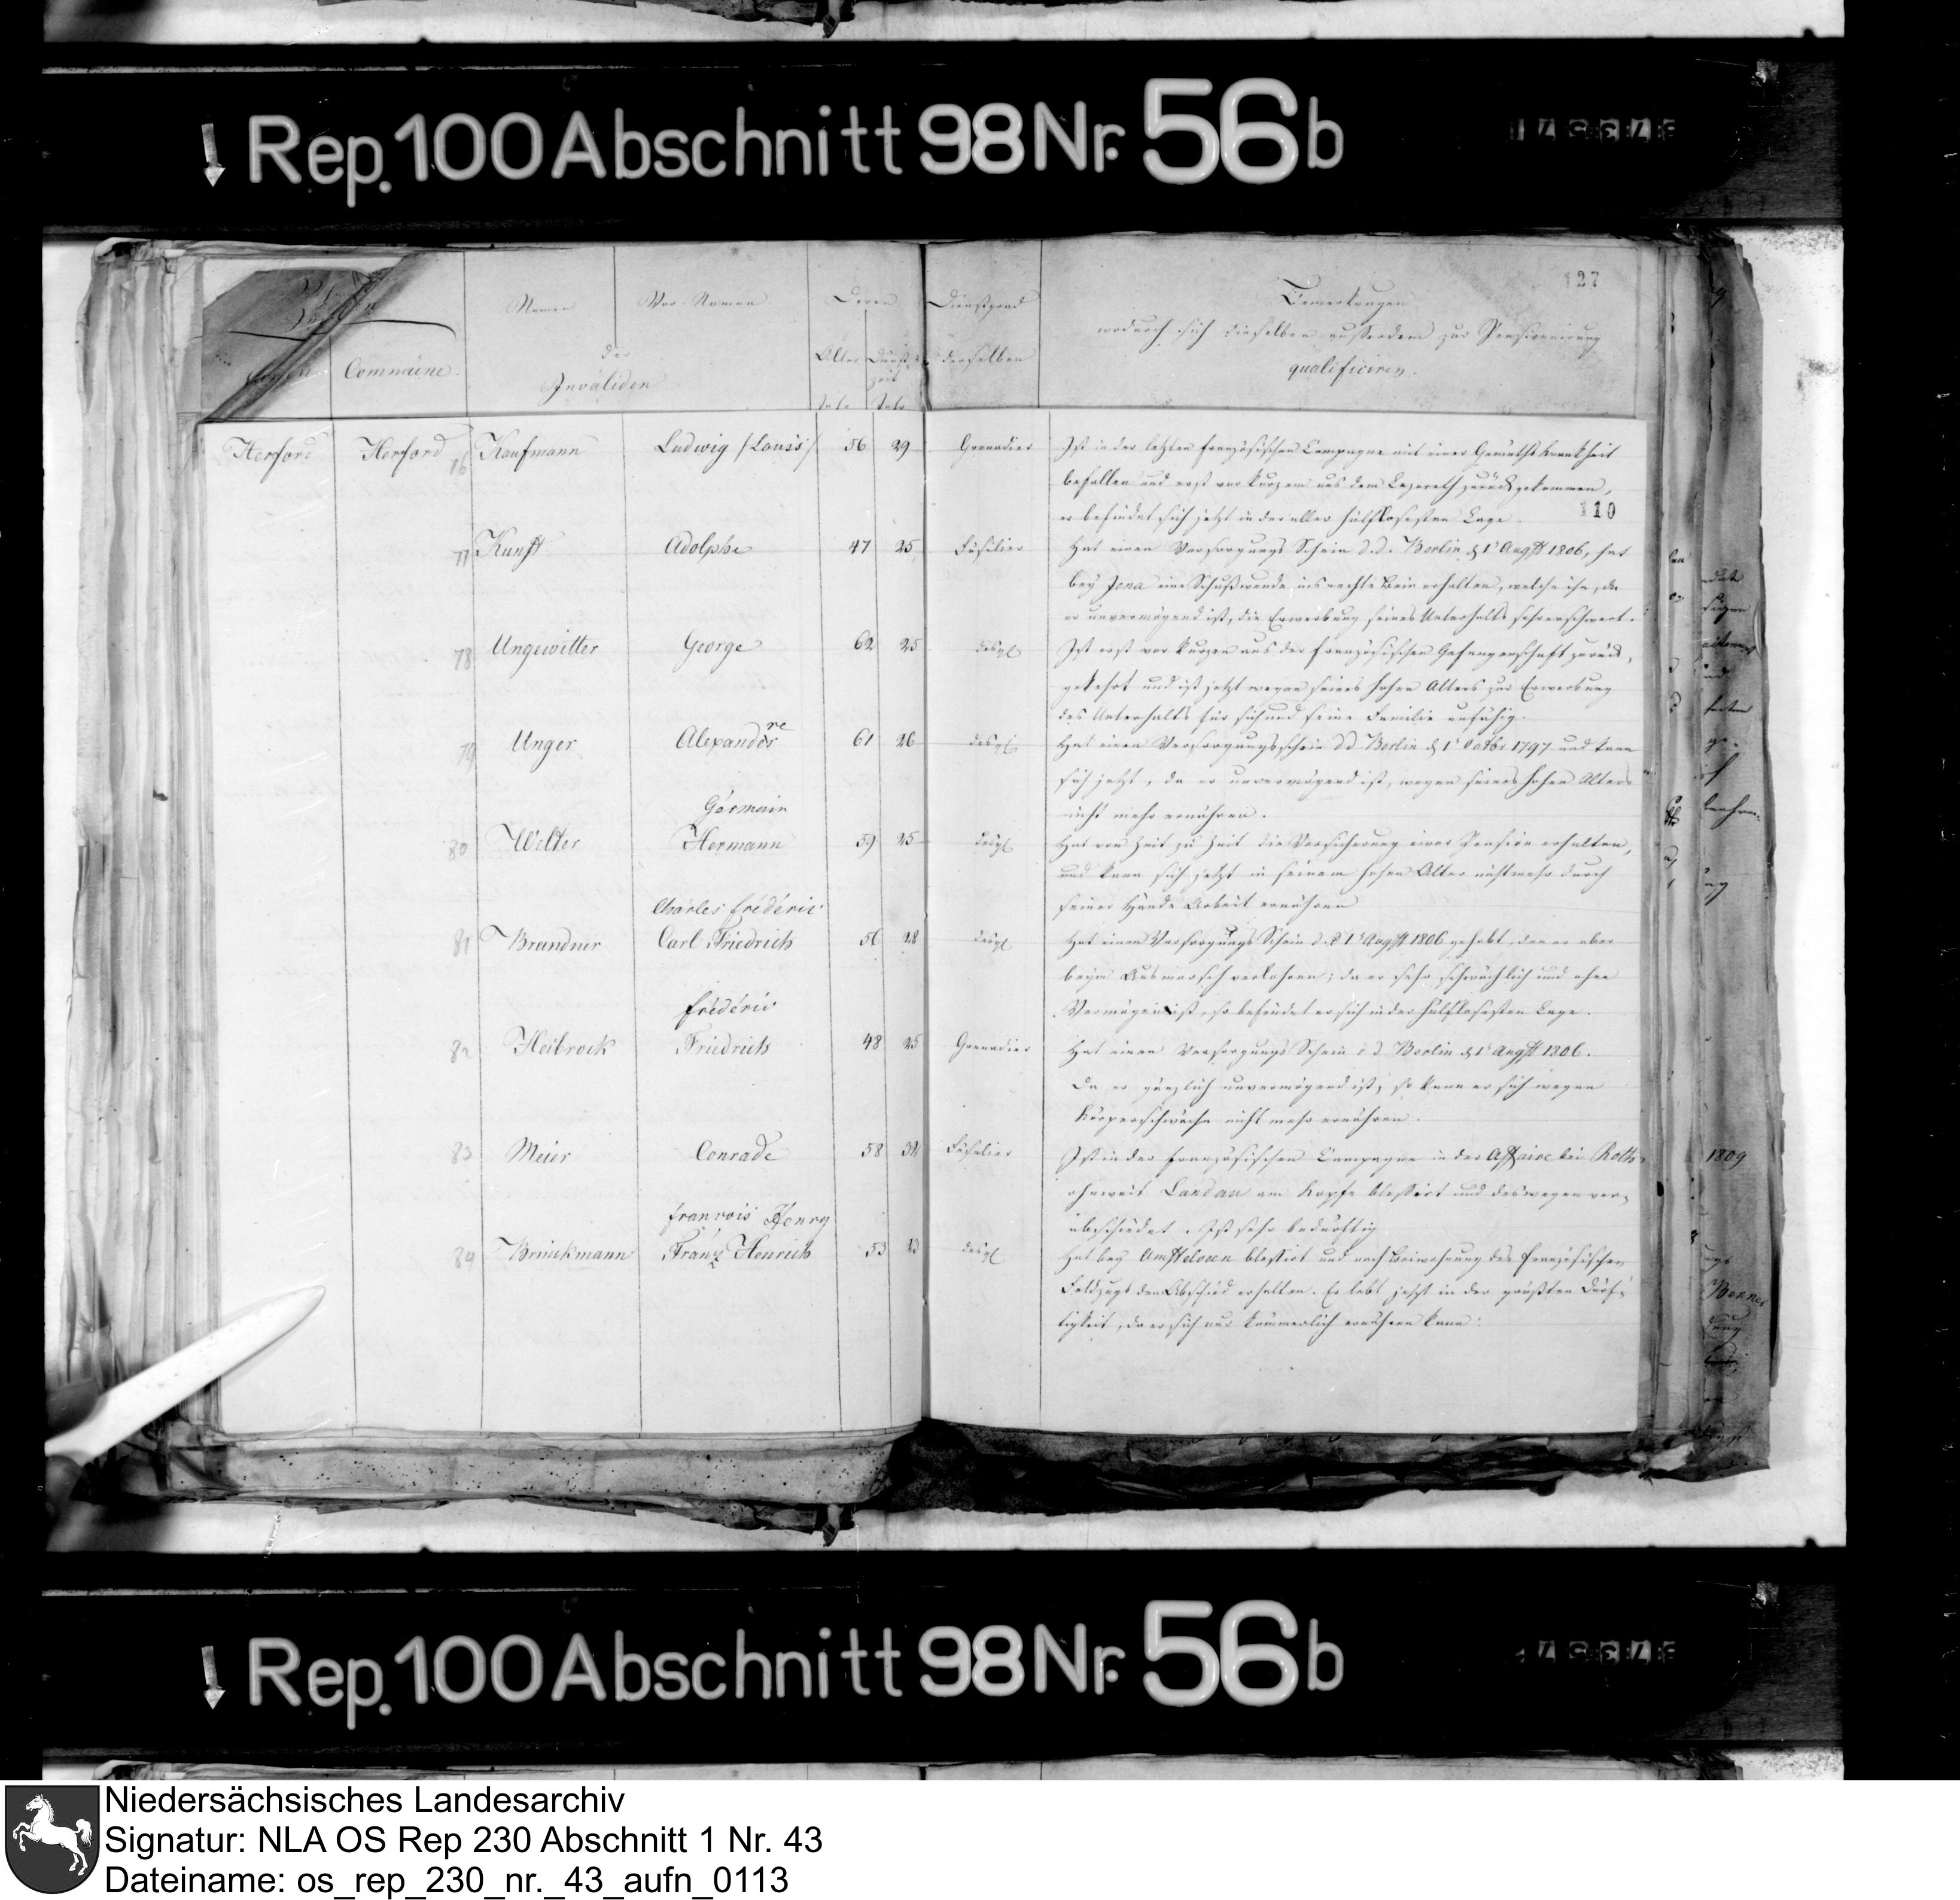 Rep. 100 Abschnitt 98 Nr. 56 b
127
Namen
Vor-Namen
Deren
Dienstgrad
Bemerkungen
wodurch sich dieselben ausserdem zur Pensionirung
Commüne.
der
Invaliden
Alter
Dienst-
zeit
derselben
qualificiren.
Jahr
Jahr
Herford
Herford
76
Kaufmann
Ludwig /Louis/
56
29
Grenadier
Ist in der letzten französischen Campagne mit einer Gemüths Krankheit
befallen und erst vor kurzem aus dem Lazareth zurückgekommen,
er befindet sich jetzt in der aller hülflosesten Lage.
110
77
Kunst
Adolphe
47
25
Füsilier
Hat einen Versorgungs Schein d.d. Berlin d 1t Augst 1806, hat
bey Jena eine Schußwunde ins rechte Bein erhalten, welche ihn, da
er unvermögend ist, die Erwerbung seines Unterhalts sehr erschwert.
78
Ungewitter
George
62
25
desgl
Ist erst vor kurzen aus der französischen Gefangenschaft zurück-
gekehrt und ist jetzt wegen seines hohen Alters zur Erwerbung
des Unterhalts für sich und seine Familie unfähig.
79
Unger
Alexandre
61
26
desgl
Hat einen Versorgungsschein d d Berlin d 1t Octbr 1797 und kann
sich jetzt, da er unvermögend ist, wegen seines hohen Alters
nicht mehr ernähren.
Germain
80
Welter
Hermann
59
25
desgl
Hat von Zeit zu Zeit die Versicherung einer Pension erhalten,
und kann sich jetzt in seinem hohen Alter nicht mehr durch
seiner Hände Arbeit ernähren
Charles fréderic
81
Brandner
Carl Friedrich
56
28
desgl
Hat einen Versorgungs Schein d.d 1t Augst 1806 gehabt, den er aber
beym Ausmarsch verlohren; da er sehr schwächlich und ohne
Vermögen ist, so befindet er sich in der hülflosesten Lage.
fréderic
82
Heibrock
Friedrich
48
25
Grenadier
Hat einen Versorgungs Schein d d Berlin d 1t Augst 1806.
Da er gänzlich unvermögend ist, so kann er sich wegen
Körperschwäche nicht mehr ernähren.
83
Meier
Conrade
58
Füselier
Ist in der französischen Campagne in der Affaire bei Roth-
ohnweit Landau am Kopfe blessirt und deswegen ver-
abschiedet. Ist sehr bedürftig
françois Henry
84
Brinckmann
Franz Henrich
53
23
desgl
Hat bey Amstelveen blessirt und nach Beiwohnung des französischen
Feldzugs den Abschied erhalten. Er lebt jetzt in der größten Dürf-
tigkeit, da er sich nur kümmerlich ernähren kann.
1809
Rep. 100 Abschnitt 98 Nr. 56 b
Niedersächsisches Landesarchiv
Signatur: NLA OS Rep 230 Abschnitt 1 Nr. 43
Dateiname: os_rep_230_nr._43_aufn_0113